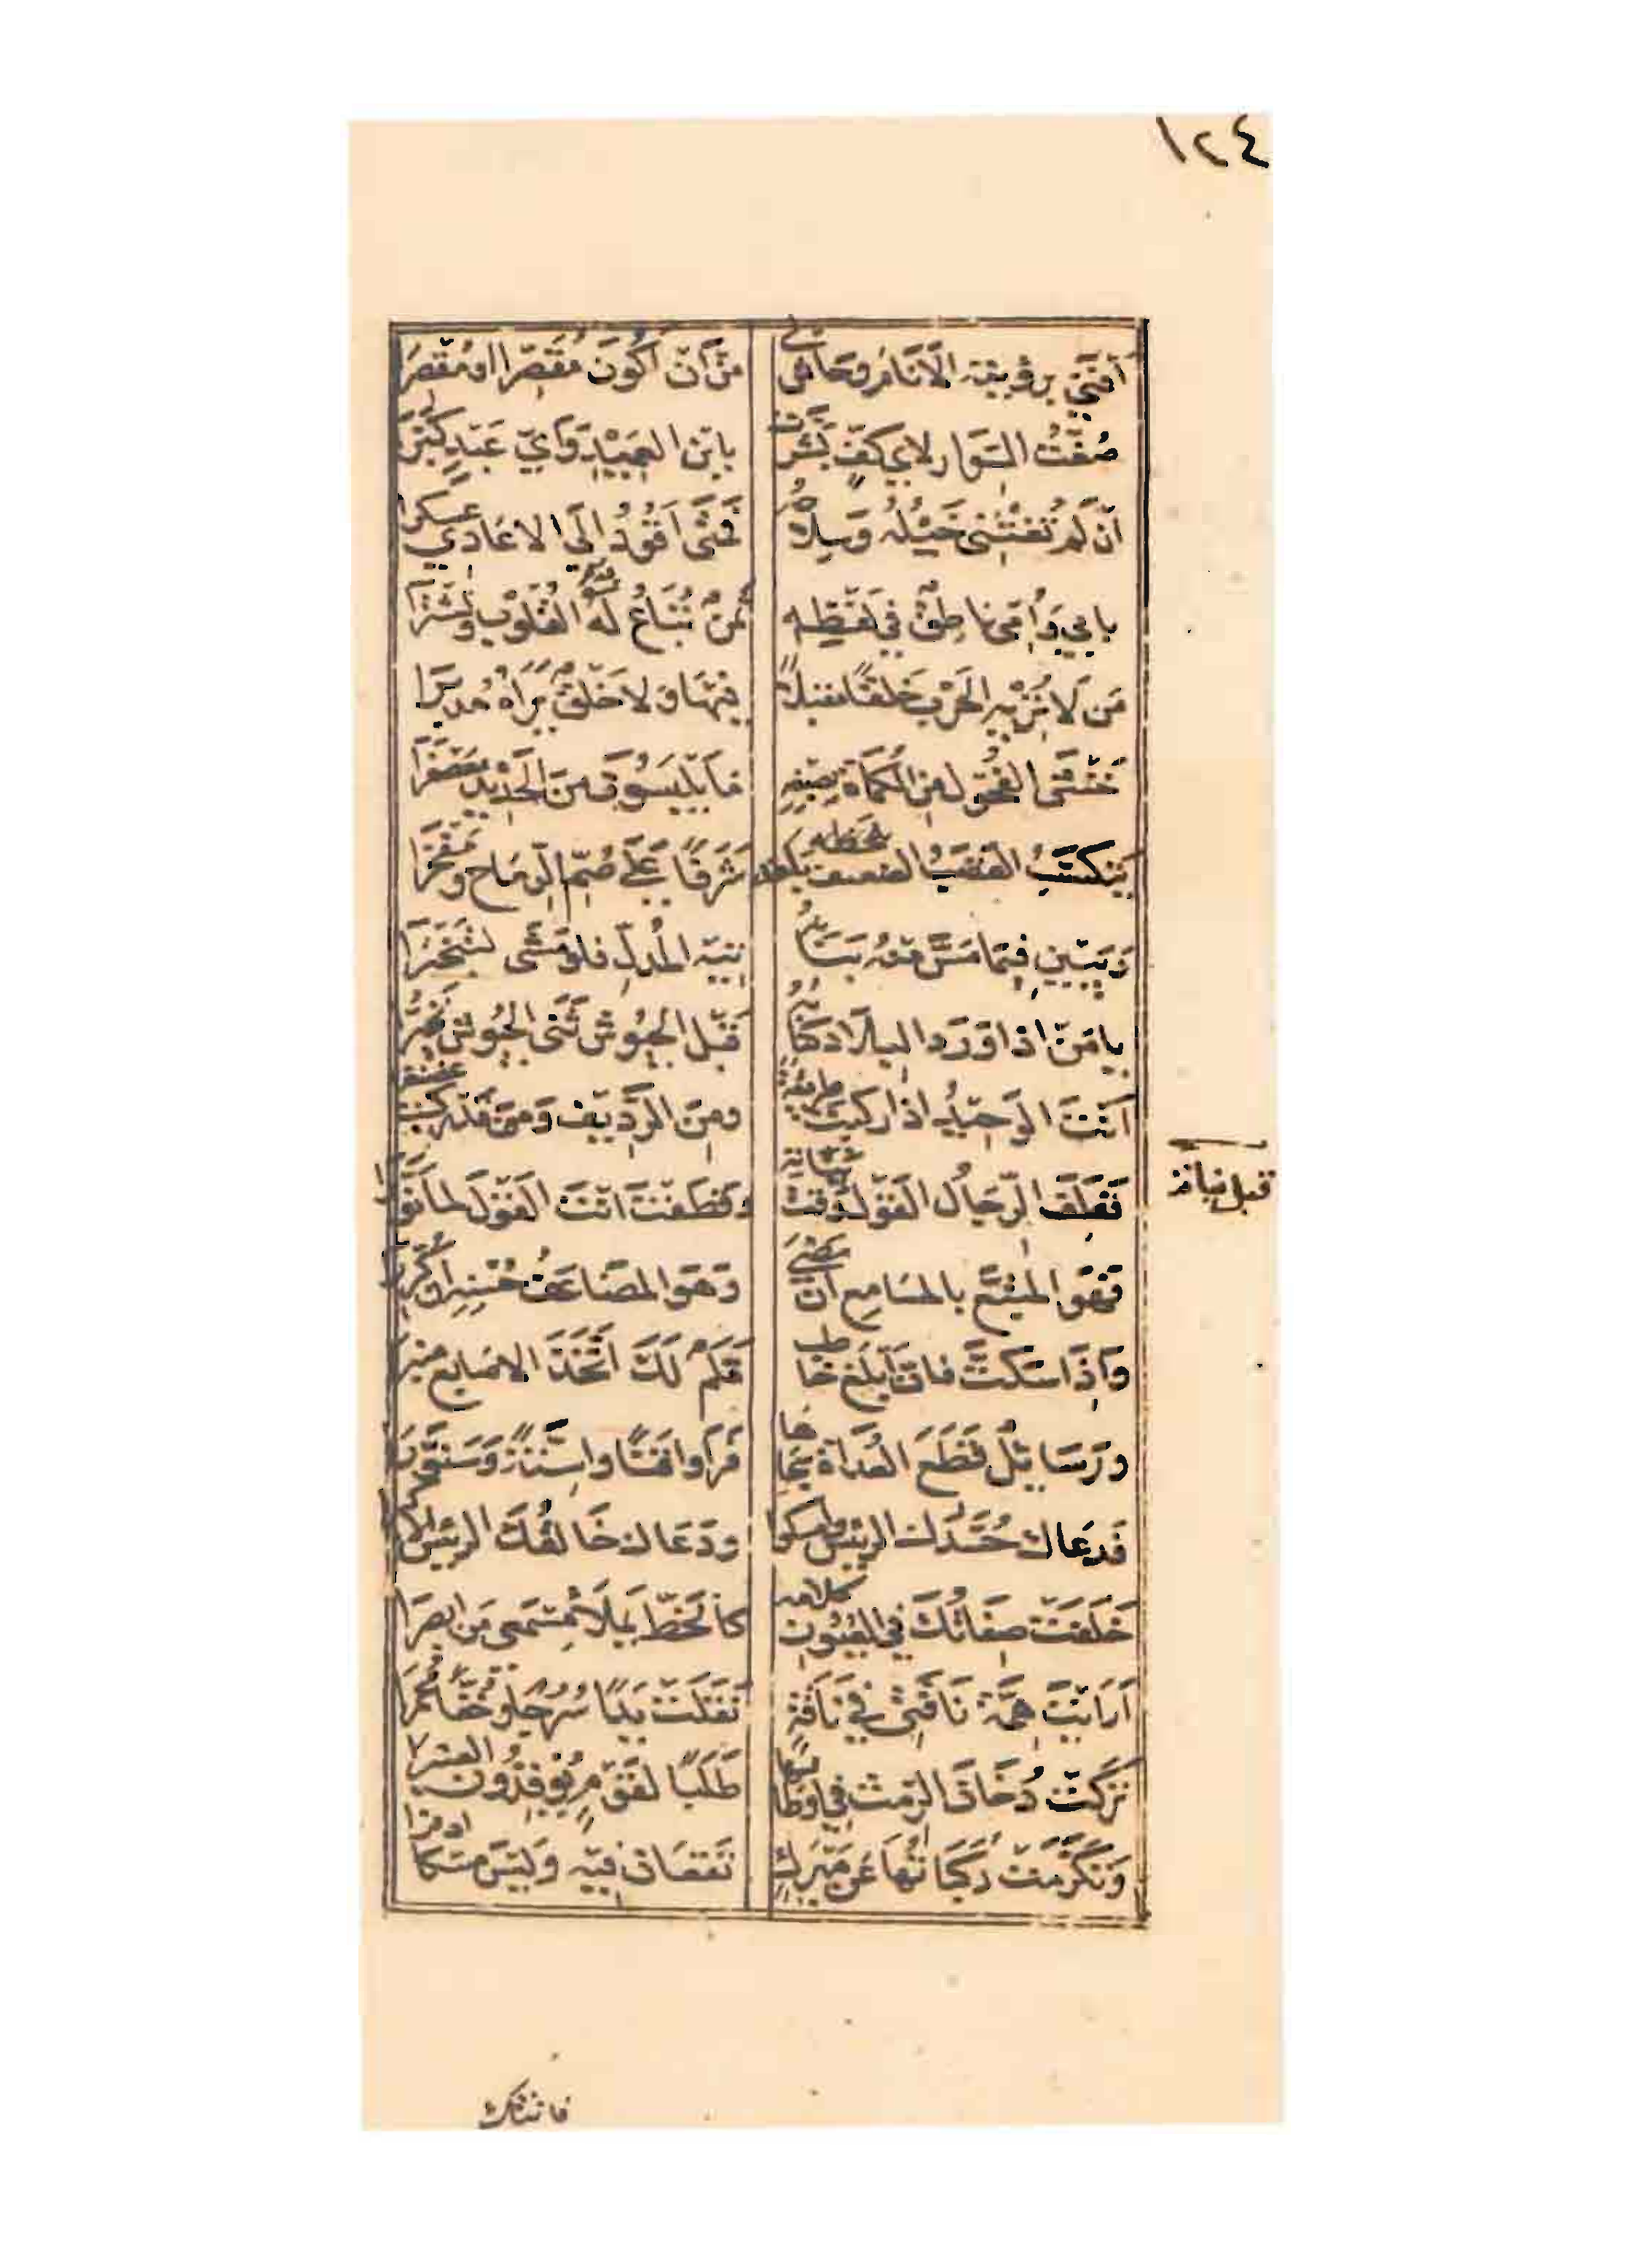 ١٢٤
اَفْتَى بِرُؤْيَتِهِ الْاَنَامُ وَحَاشَى لِي مِنْ اَنْ اَكُونَ مُقَصِّرًا اَوْ مُقْصِرَا
صُغْتُ السِّوَارَ لِاَيِّ كَفٍّ بَشَّرَتْ بِابْنِ الْعَمِيْدِ وَاَيِّ عَبْدٍ كَبَّرَا
اِنْ لَمْ تُغِثْنِي خَيْلُهُ وَسِلَاحُهُ فَمَتَى اَقُودُ اِلَى الْاَعَادِي عَسْكَرَا
بِابِي وَاُمِّي نَاطِقٌ فِي لَفْظِهِ ثَمَنٌ تُبَاعُ لَهُ الْقُلُوبُ وَتُشْتَرَا
مَنْ لَا تُرِيْهِ الْحَرْبُ خَلْقًا مُقْبِلًا فِيْهَا وَلَا خَلْقٌ يَرَاهُ مُدْبِرَا
خَنْثَى الْفُحُولَ مِنَ الْكُمَاةِ بِصَبْغِهِ مَا يَلْبَسُونَ مِنَ الْحَدِيْدِ مُعَصْفَرَا
يَتَكَسَّبُ الْقَصَبُ الضَّعِيفُ بِخَطِّهِ شَرَفًا عَلَى صُمِّ الرِّمَاحِ وَمَفْخَرَا
وَيَبِيْنُ فِيْمَا مَسَّ مِنْهُ بَنَانُهُ تِيْهُ الْمُدِلِّ فَلَوْ مَشَى لَتَبَخْتَرَا
يَا مَنْ اِذَا وَرَدَ الْبِلَادَ كِتَابُهُ قَبْلَ الْجُيُوشِ ثَنَى الْجُيُوشَ تَحَيُّرَا
اَنْتَ الْوَحِيْدُ اِذَا رَكِبْتَ طَرِيْقَةً وَمَنِ الرَّدِيفُ وَقَدْ رَكِبْتَ غَضَنْفَرَا
قَطَفَ الرِّجَالُ الْقَوْلَ وَقْتَ نَبَاتِهِ وَقَطَفْتَ اَنْتَ الْقَوْلَ لَمَّا نَوَّرَا
قبل نباته
فَهُوَ الْمُشَيَّعُ بِالْمَسَامِعِ اِنْ مَضَى وَهُوَ الْمُضَاعَفُ حُسْنُهُ اِنْ كُرِّرَا
وَاِذَا سَكَتَّ فَاِنَّ اَبْلَغَ خَاطِبٍ قَلَمٌ لَكَ اتَّخَذَ الْاَصَابِعَ مِنْبَرَا
وَرَسَائِلٌ قَطَعَ الْعُدَاةُ سِحَاءَهَا فَرَاَوْا قَنًا وَاَسِنَّةً وَسَنَوَّرَا
فَدَعَاكَ حُسَّدُكَ الرَّئِيسَ وَاَمْسَكُوا وَدَعَاكَ خَالِقُكَ الرَّئِيسَ الْاَكْبَرَا
خَلَفَتْ صِفَاتُكَ فِي الْعُيُونِ كَلَامَهُ كَالْخَطِّ يَمْلَأُ مِسْمَعَيْ مَنْ اَبْصَرَا
اَرَاَيْتَ هِمَّةَ نَاقَتِي فِي نَاقَةٍ نَقَلَتْ يَدًا سُرُحًا وَخُفًّا مُجْمَرَا
تَرَكَتْ دُخَانَ الرِّمْثِ فِي اَوْطَانِهَا طَلَبًا لِقَوْمٍ يُوقِدُونَ الْعَنْبَرَا
وَتَكَرَّمَتْ رُكَبَاتُهَا عَنْ مَبْرَكٍ تَقَعَانِ فِيْهِ وَلَيْسَ مِسْكًا اَذْفَرَا
فاتتك